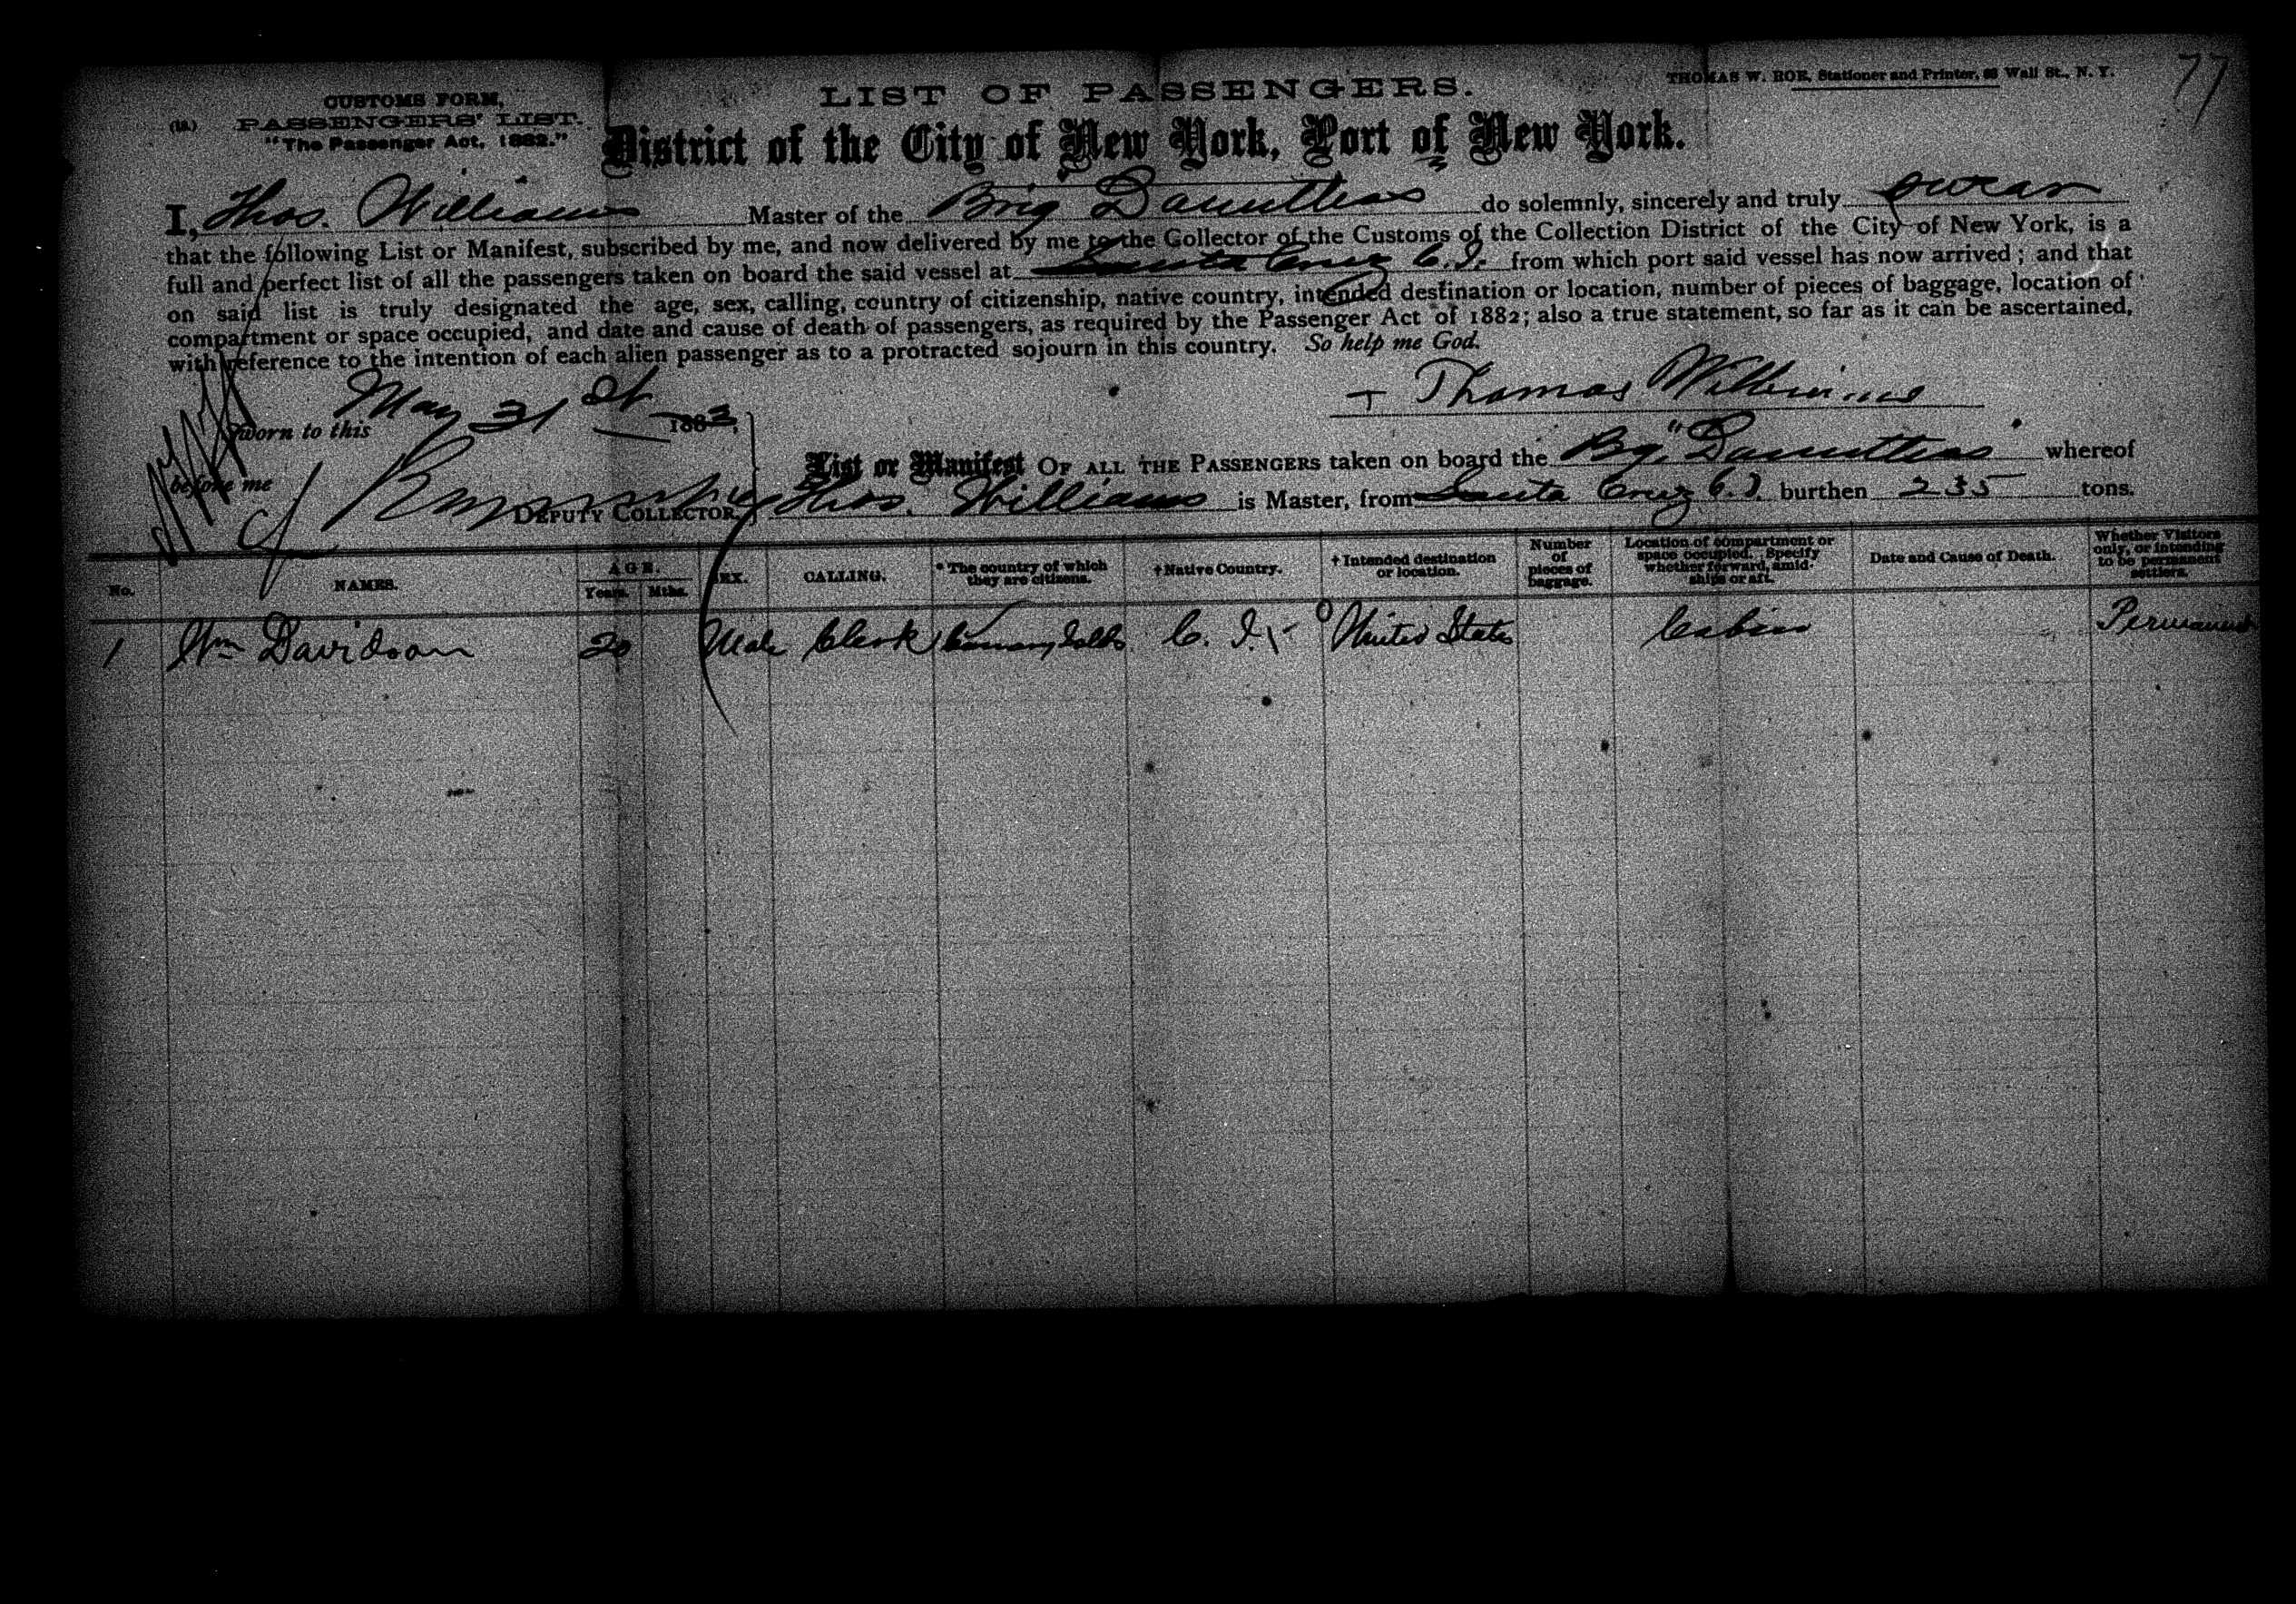 THOMAS W. ROE, Stationer and Printer, 93 Wall St., N. Y.
77
CUSTOMS FORM,
PASSENGERS' LIST.
"The Passenger Act, 1882."
LIST OF PASSENGERS.
District of the City of New York, Port of New York.
I, Thos. Williams Master of the Brig Dauntless do solemnly, sincerely and truly swear
that the following List or Manifest, subscribed by me, and now delivered by me to the Collector of the Customs of the Collection District of the City of New York, is a
full and perfect list of all the passengers taken on board the said vessel at Santa Cruz C. I. from which port said vessel has now arrived; and that
on said list is truly designated the age, sex, calling, country of citizenship, native country, intended destination or location, number of pieces of baggage, location of
compartment or space occupied, and date and cause of death of passengers, as required by the Passenger Act of 1882; also a true statement, so far as it can be ascertained,
with reference to the intention of each alien passenger as to a protracted sojourn in this country. So help me God.
Sworn to this May 31st 1883,
Thomas Williams
before me
DEPUTY COLLECTOR.
List or Manifest OF ALL THE PASSENGERS taken on board the Bg. "Dauntless" whereof
Thos. Williams is Master, from Santa Cruz C. I. burthen 235 tons.
No. NAMES. AGE. Years. Mths. SEX. CALLING. * The country of which they are citizens. † Native Country. † Intended destination or location. Number of pieces of baggage. Location of compartment or space occupied. Specify whether forward, amidships or aft. Date and Cause of Death. Whether Visitors only, or intending to be permanent settlers.
1 Wm Davidson 20 Male Clerk Canary Islds. C. I. United States Cabin Permanent